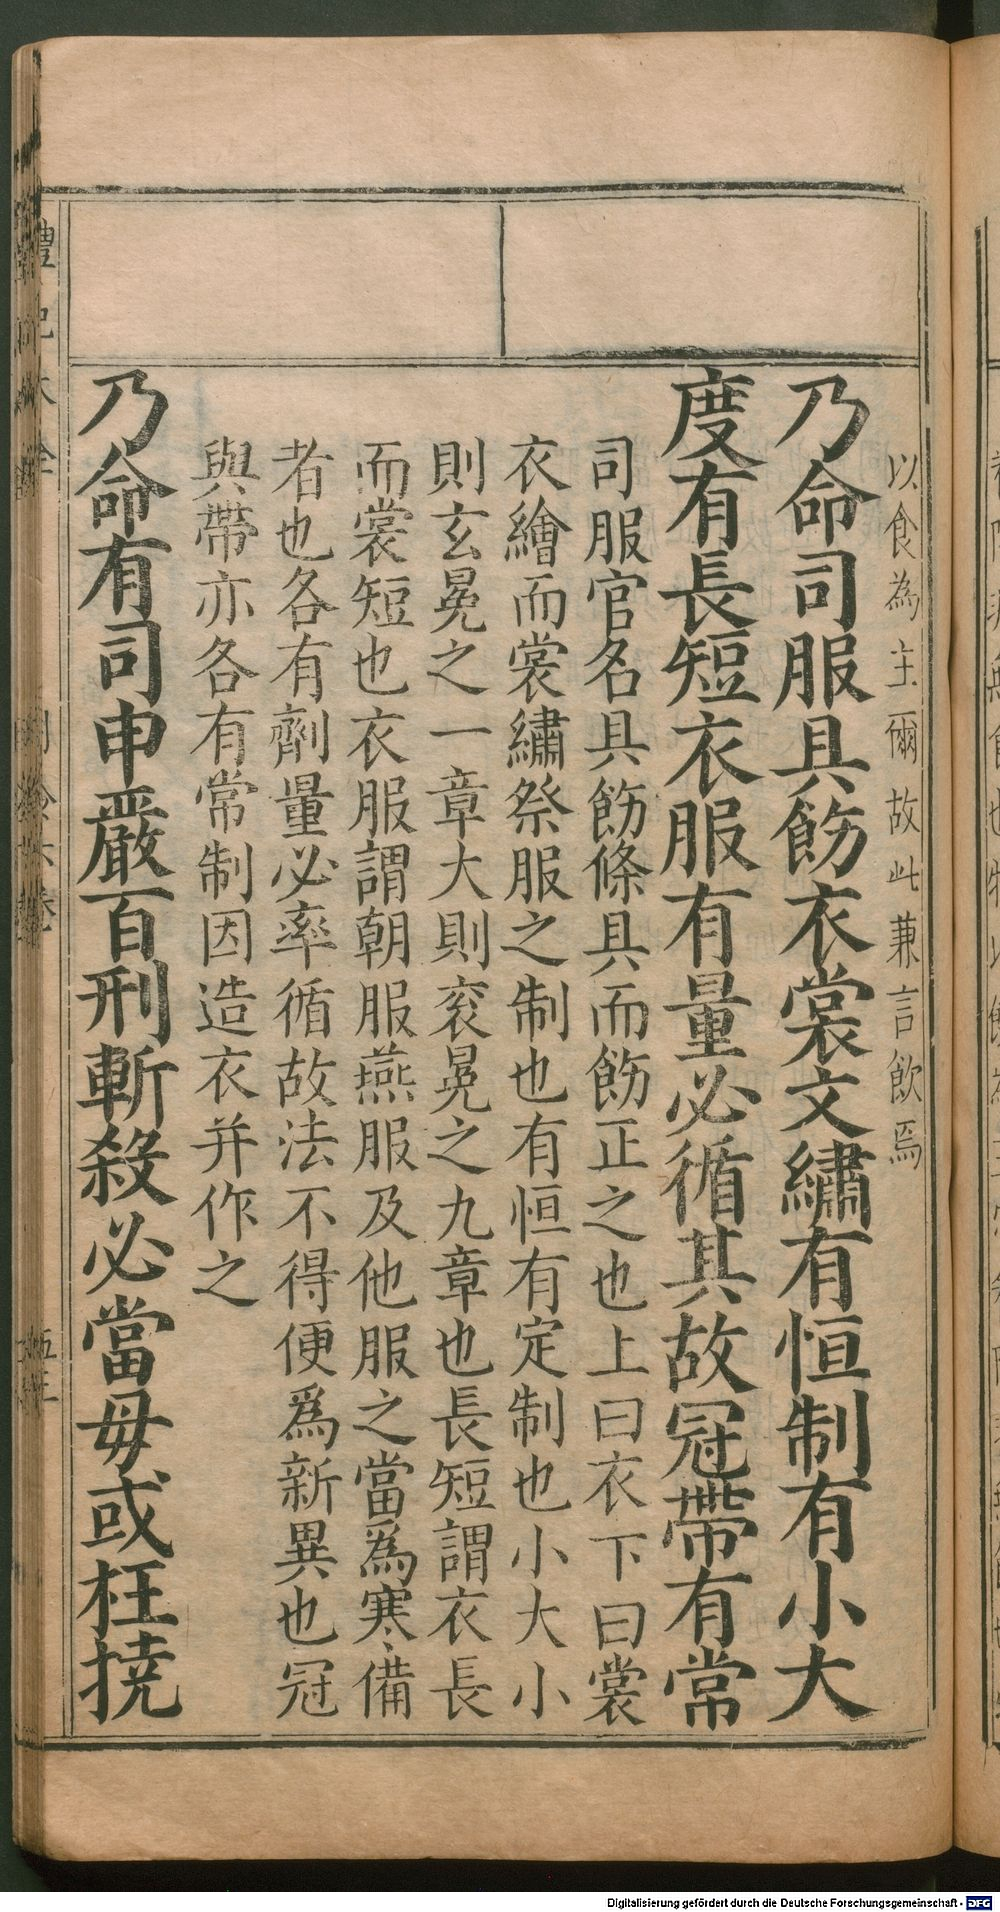 以食為主爾故此兼言飲焉
乃命司服具飭衣裳文繡有恒制有小大
度有長短衣服有量必循其故冠帶有常
司服官名具飭條具而飭正之也上曰衣下曰裳
衣繪而裳繡祭服之制也有恒有定制也小大小
則玄冕之一章大則衮冕之九章也長短謂衣長
而裳短也衣服謂朝服燕服及他服之當為寒備
者也各有劑量必率循故法不得便爲新異也冠
與帶亦各有常制因造衣并作之
乃命有司申嚴百刑斬殺必當毋或枉撓
Digitalisierung gefördert durch die Deutsche Forschungsgemeinschaft - DFG